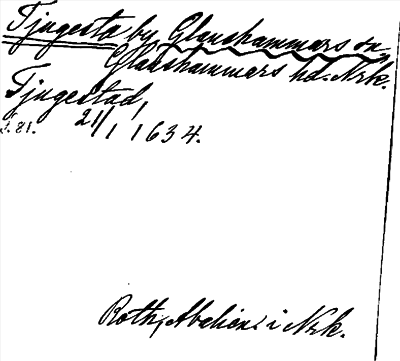 Tjugesta by Glanshammars sn
Glanshammars hd. Nrk.
Tjugestad,
S. 81. 21/1 1634.
Roth, i Nrk.